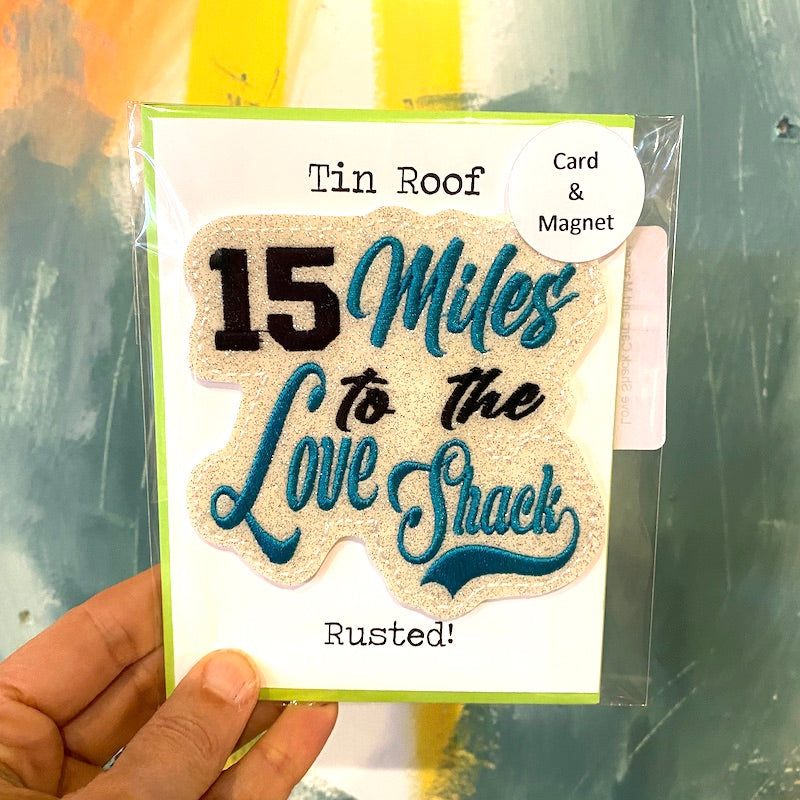 Tin Roof
Card
&
Magnet
15 Miles
to the
Love Shack
Rusted!